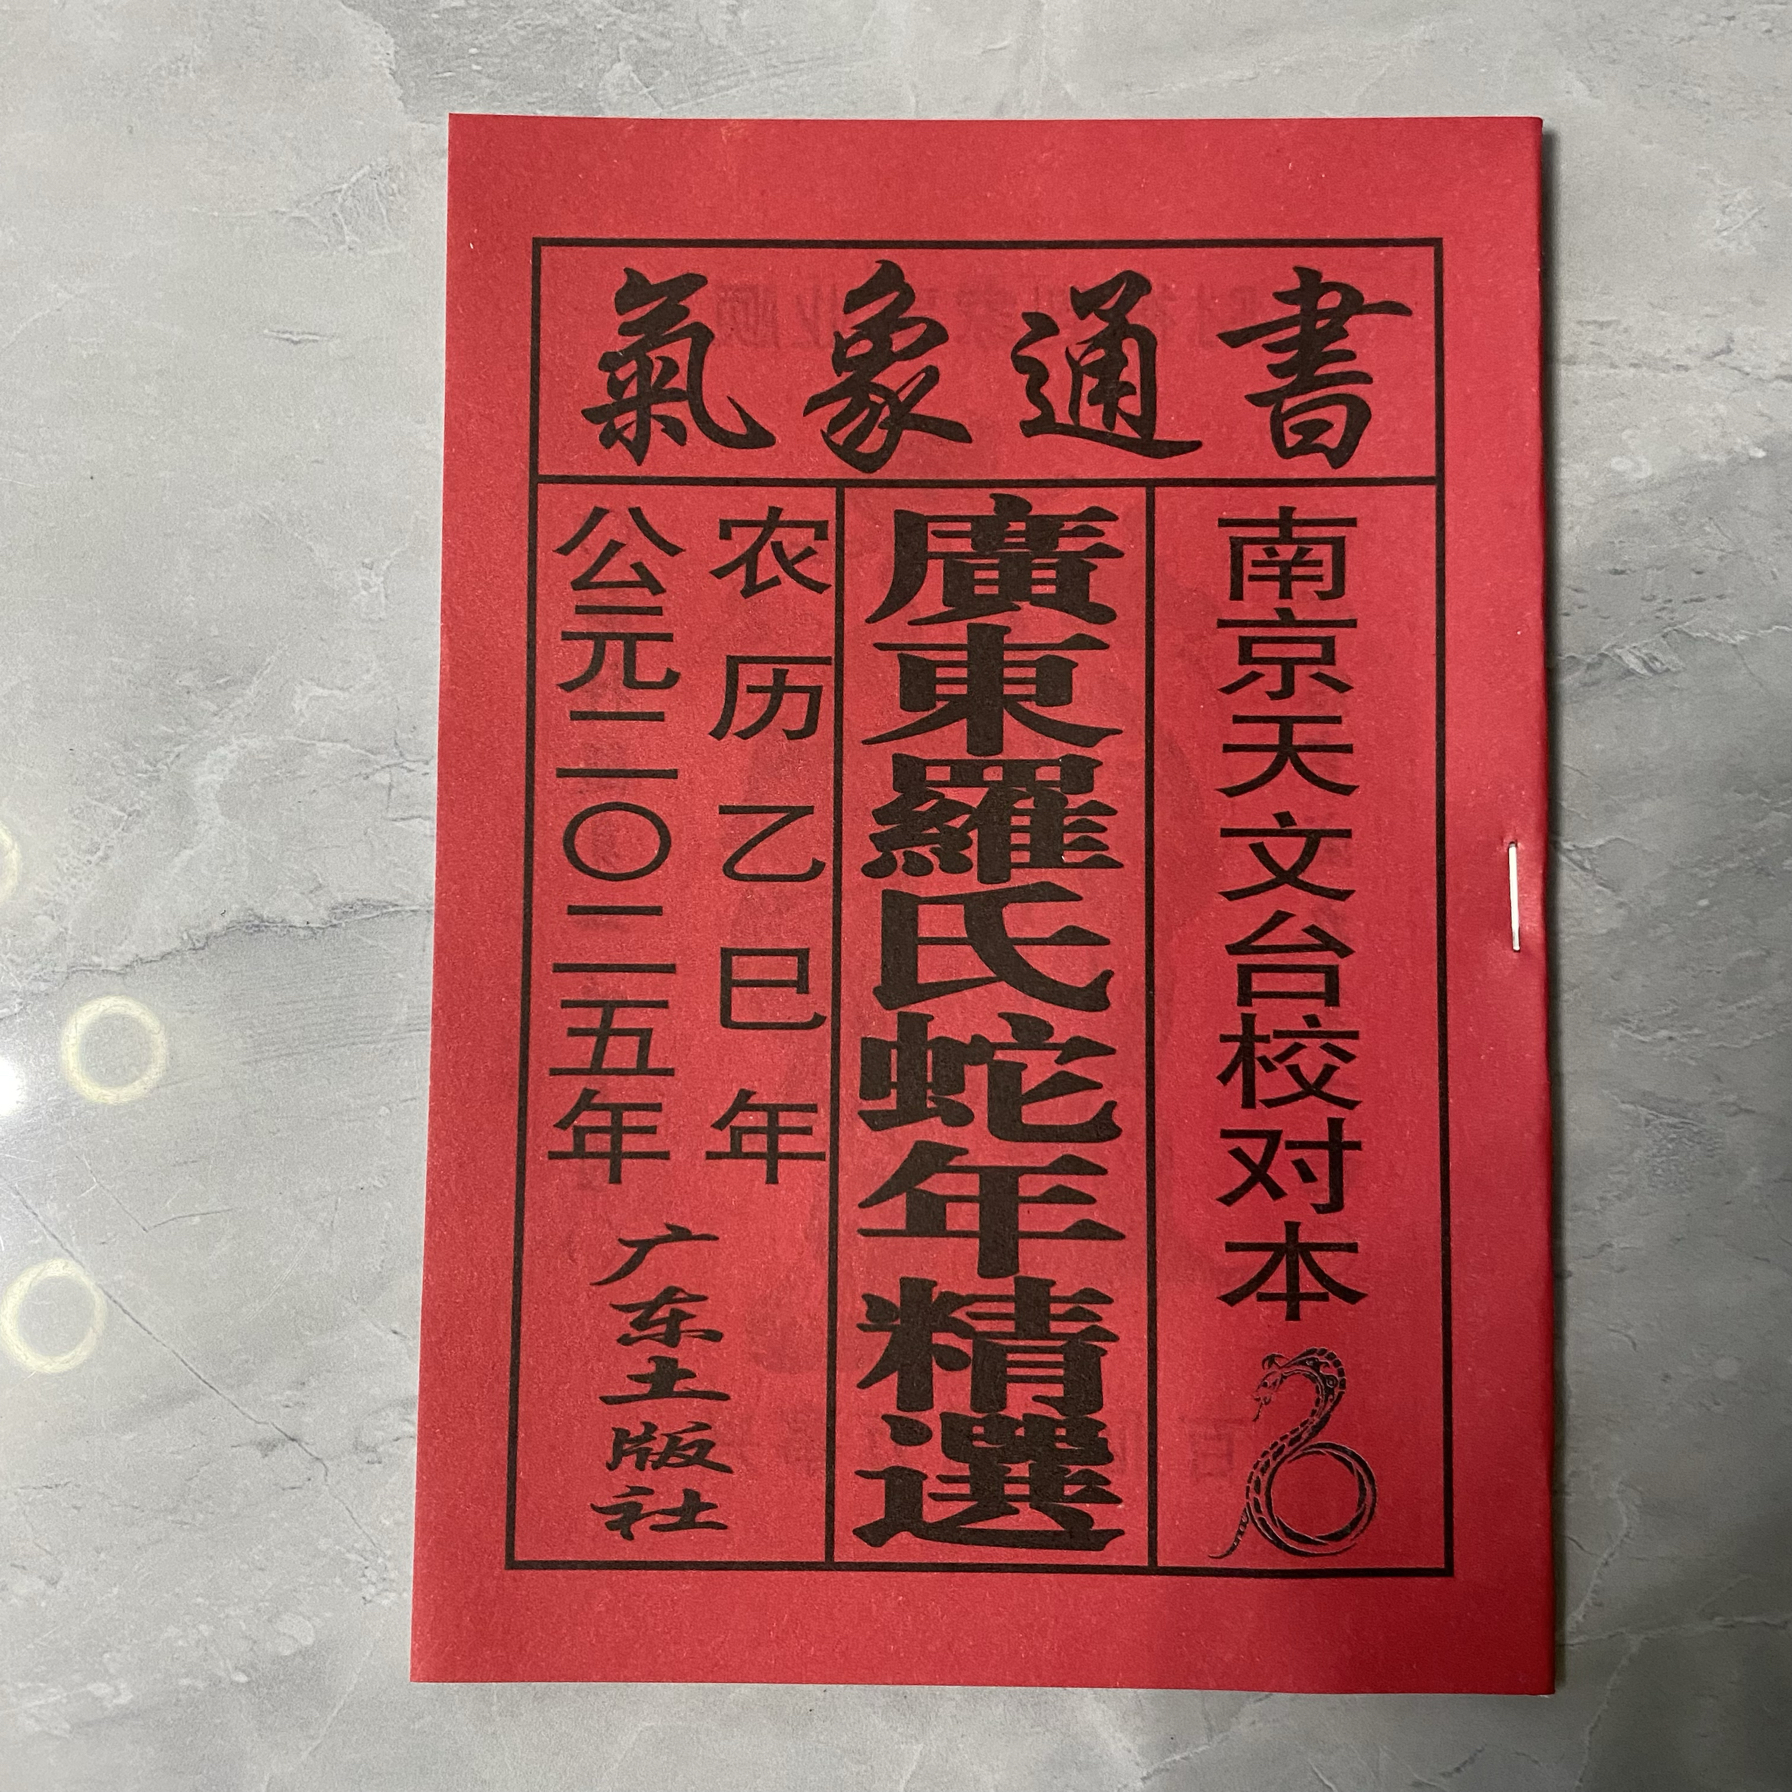 氣象通書
南京天文台校对本
廣東羅氏蛇年精選
农历乙巳年
公元二〇二五年
广东土版社